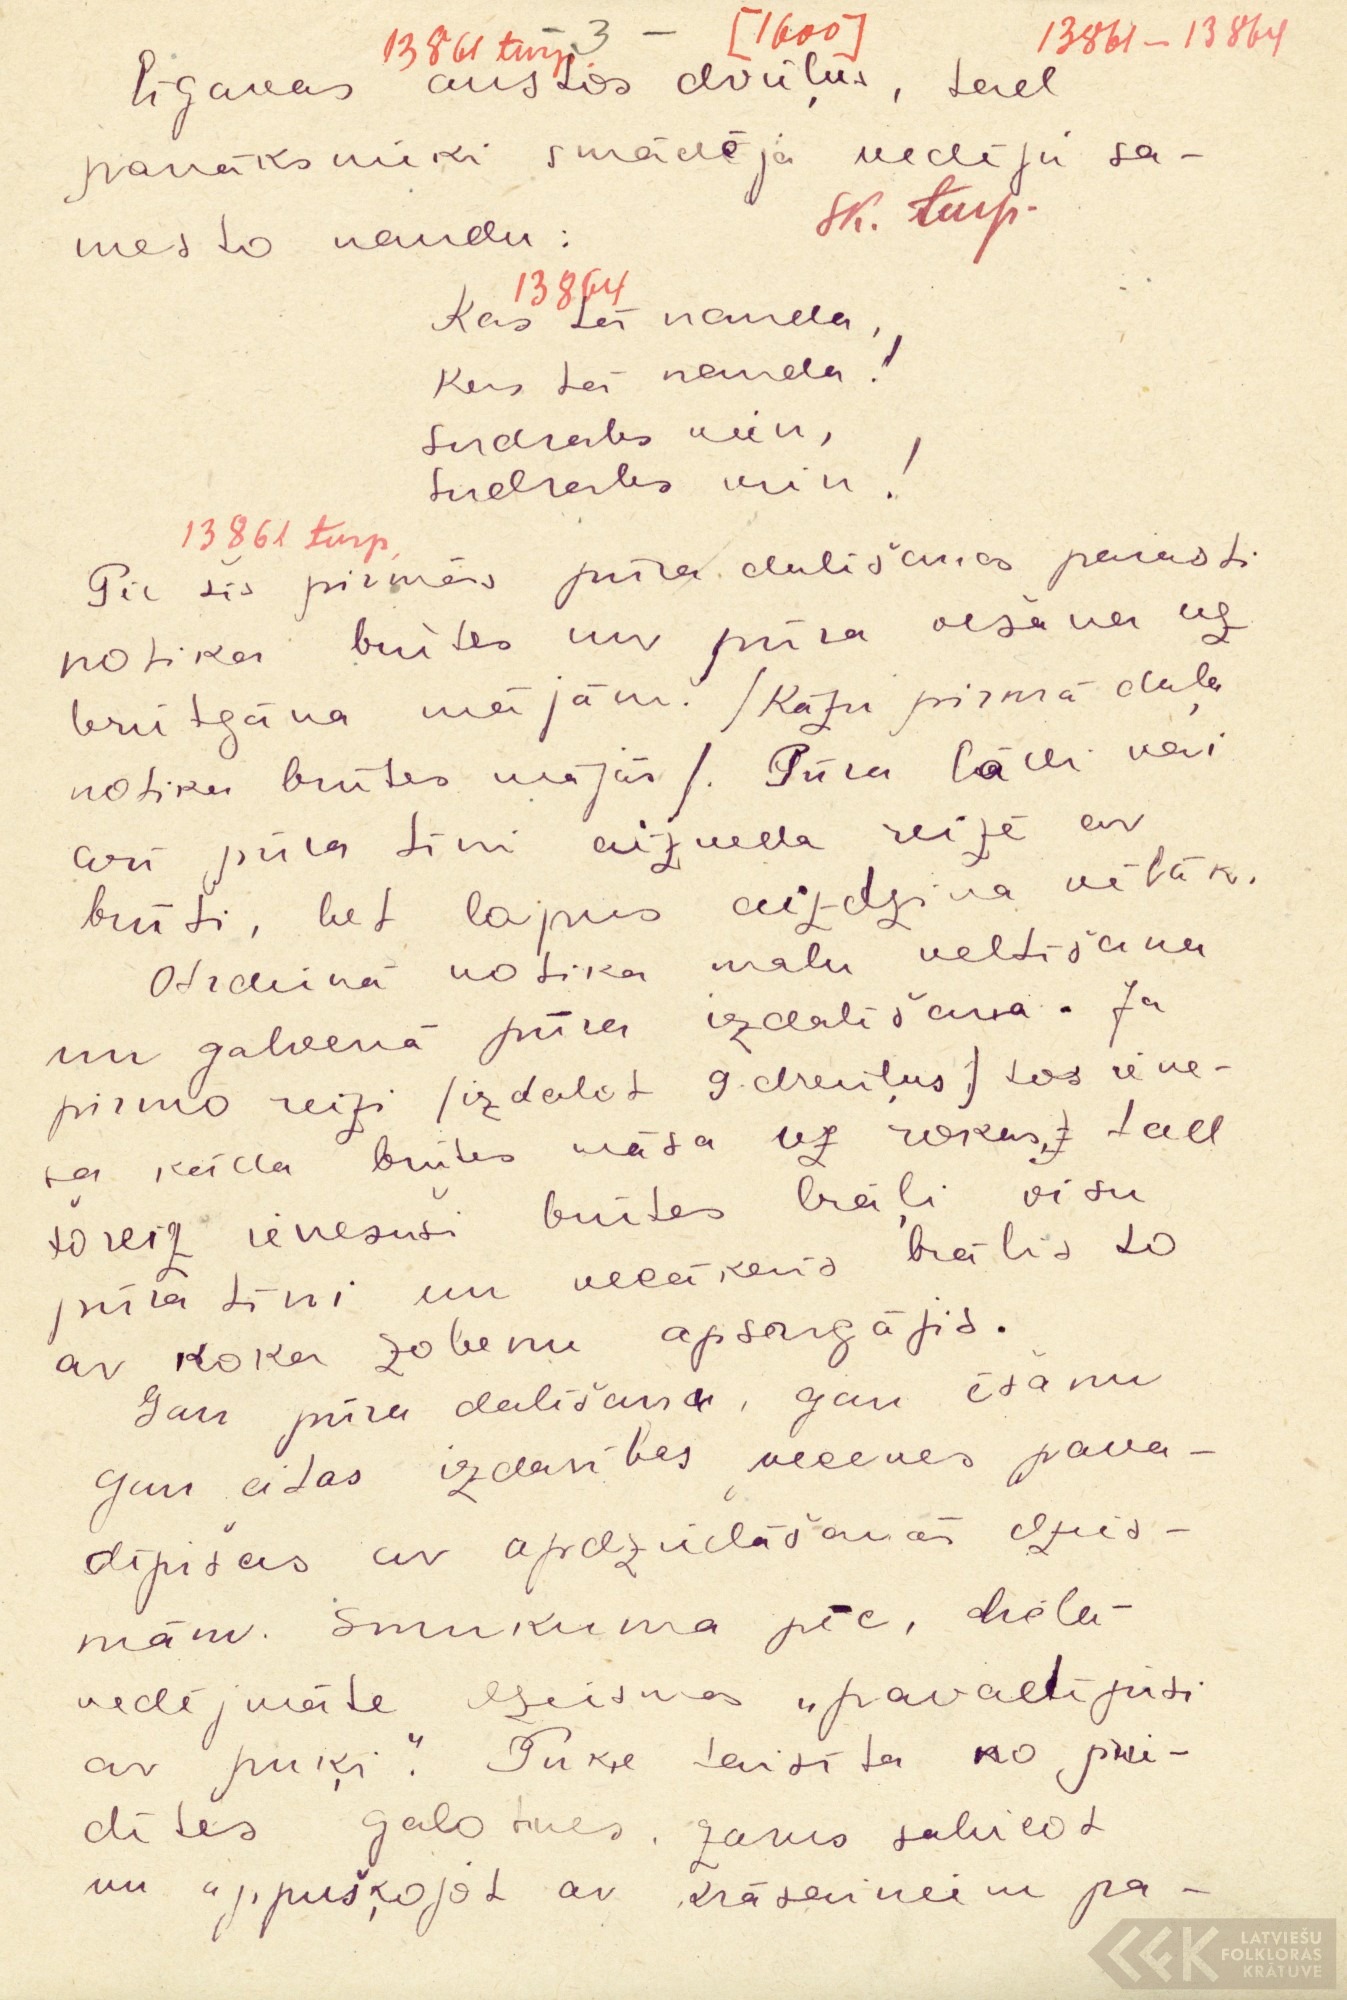 13861 turp. 3 — [1600] 13861 – 13864
līgavas austos dvieļus, tad
panāksnieki smādēja vedēju sa-
mesto naudu:
sk. turp.
13864
Kas tā nauda,
Kas tā nauda!
Sudrabs vien,
Sudrabs vien!
13861 turp.
Pēc šīs pirmās pūra dalīšanas parasti
notika brūtes un pūra vešana uz
brūtgāna mājām. /Kāzu pirmā daļa
notika brūtes mājās/. Pūra lādi vai
arī pūra tīni aizveda reizē ar
brūti, bet lopus aizdzina vēlāk.
Otrdienā notika malu veltīšana
un galvenā pūra izdalīšana. Ja
pirmo reizi /izdalot 9 dvieļus/ tos iene-
sa kāda brūtes māsa uz rokas, tad
šoreiz ienesuši brūtes brāļi visu
pūra tīni un vecākais brālis to
ar koka zobenu apsargājis.
Gan pūra dalīšanu, gan ēšanu
gan citas izdarības vecenes pava-
dījušas ar apdziedāšanās dzies-
mām. Smukuma pēc,
vedējmāte dziesmas „pavadījusi
ar puķi". Puķe taisīta no prie-
dītes galotnes, zarus saliecot
un appuškojot ar krāsainiem pa-
LATVIEŠU
FOLKLORAS
KRĀTUVE